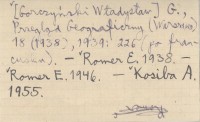 "[Gorczyński Władysław] G.,
Przegląd Geograficzny (Warszawa)
18 (1938), 1939: 226 (po fran-
cusku). — "Romer E. 1938. —
"Romer E. 1946. — "Kosiba A.
1955.